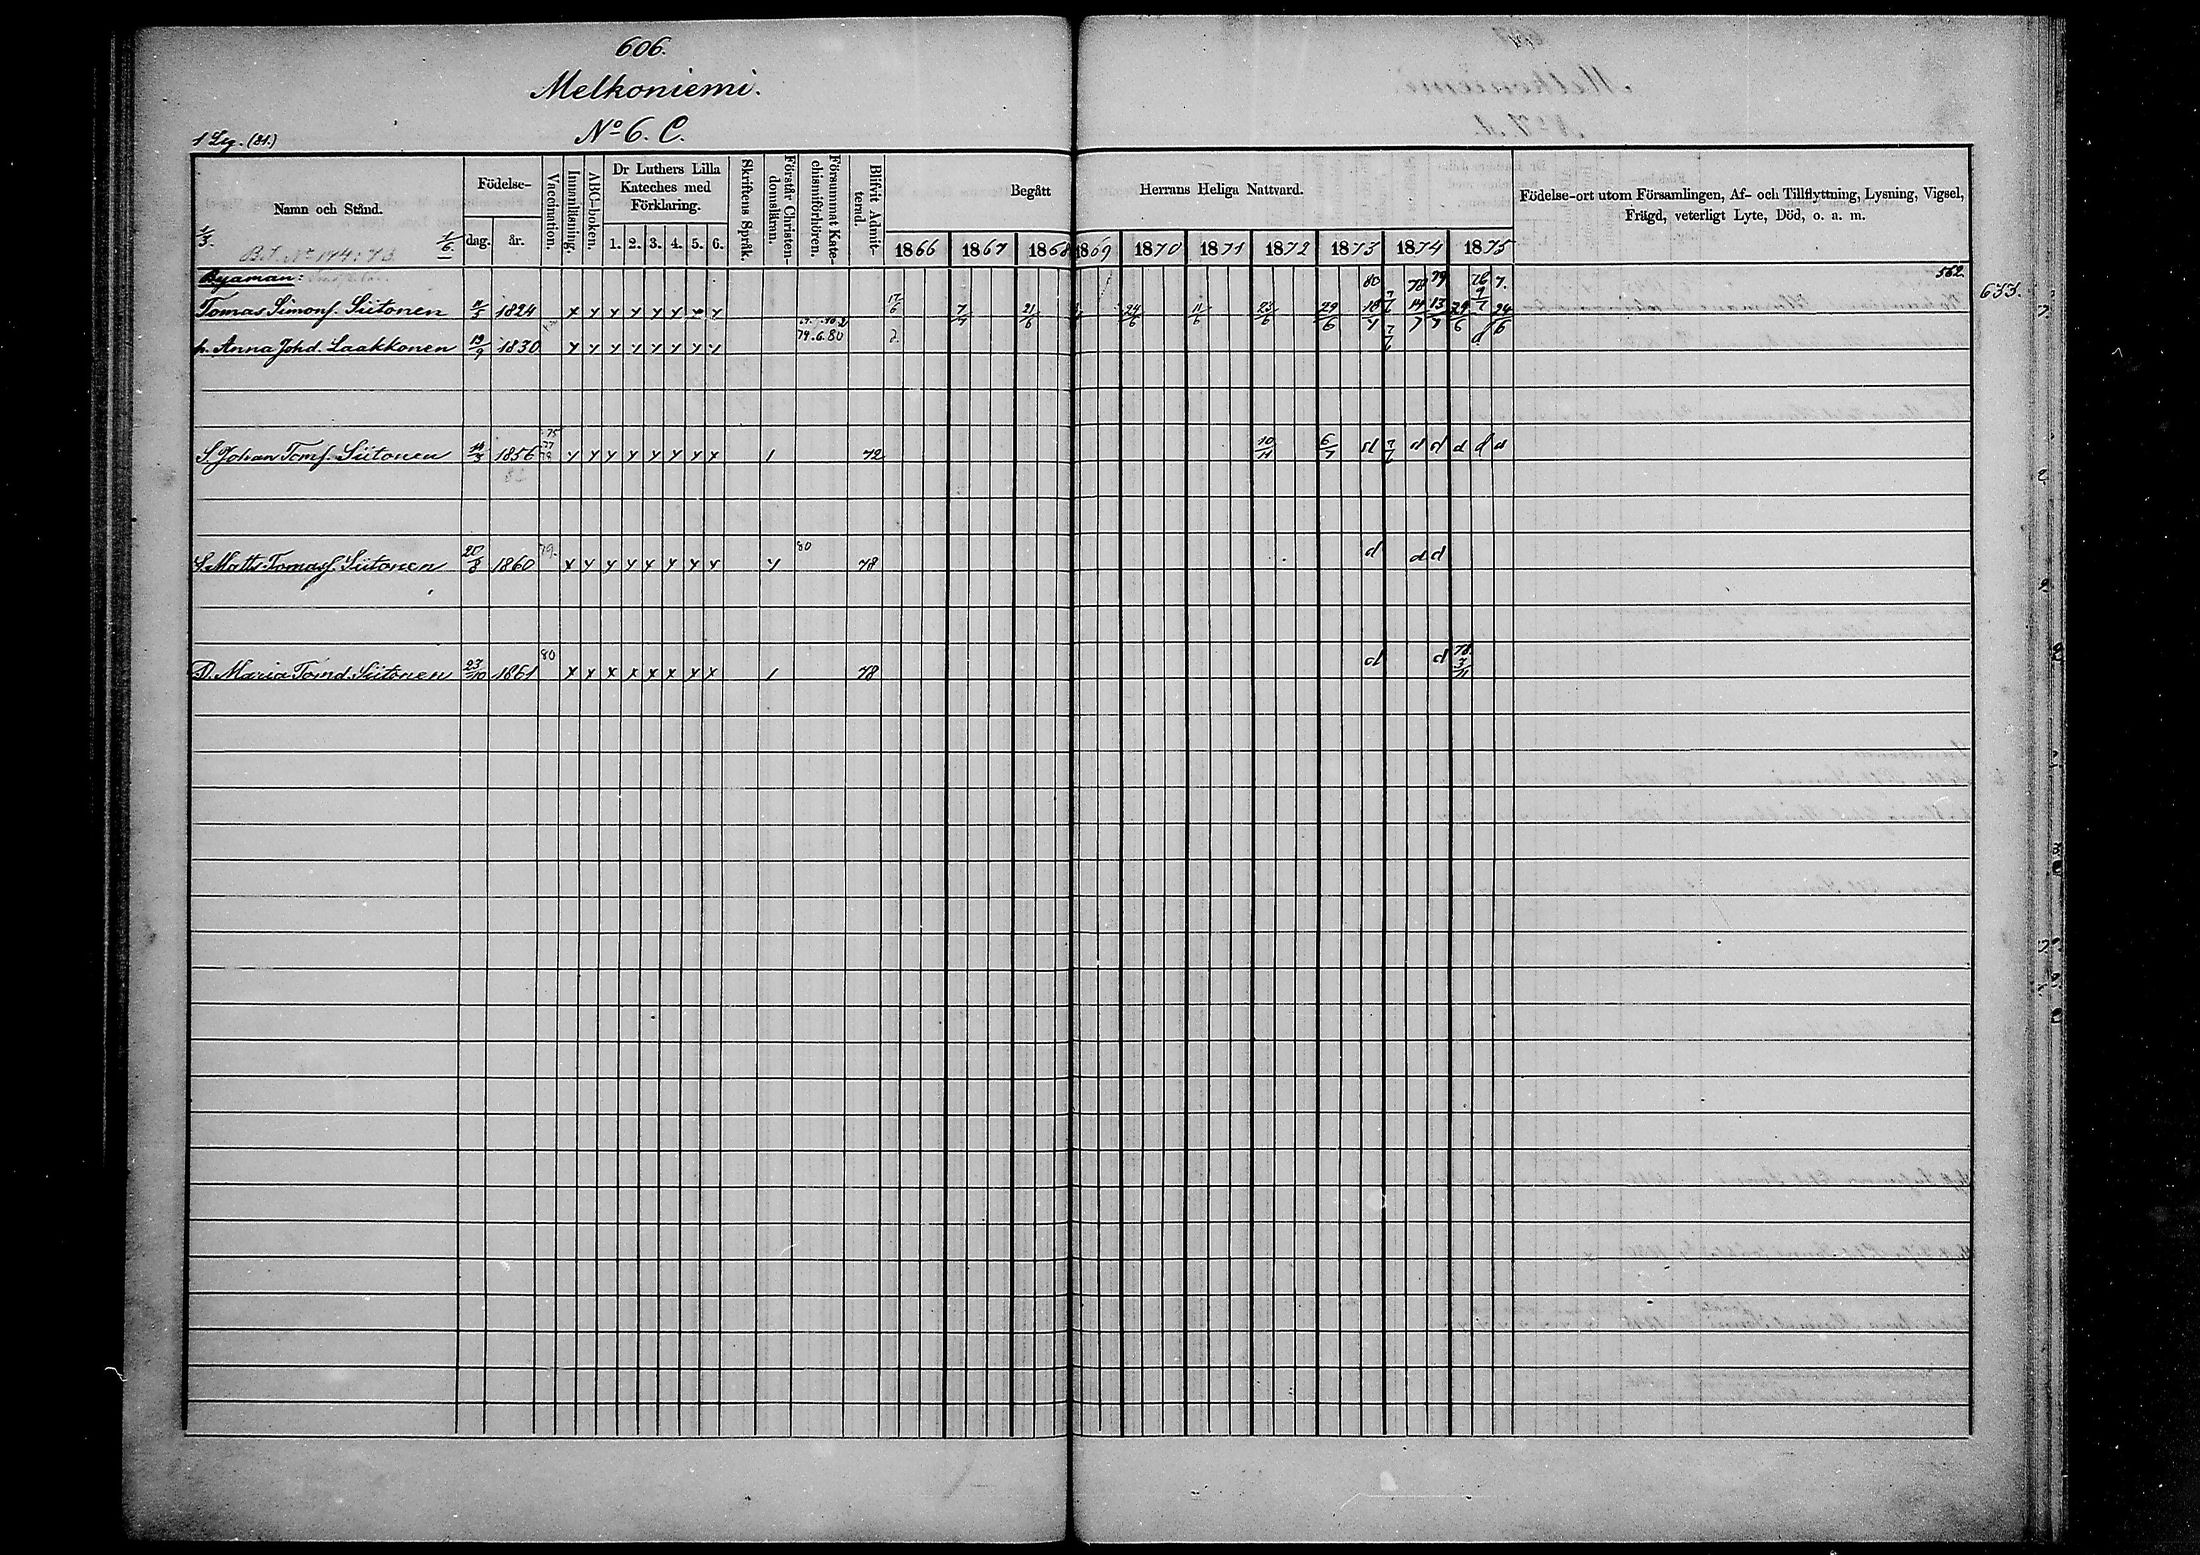 606.
Melkoniemi.
No 6. C.
1 Lg. (81.)
Namn och Stånd.
Födelse-
dag. år.
Vaccination.
Innanläsning.
ABC-boken.
Dr Luthers Lilla
Kateches med
Förklaring.
1. 2. 3. 4. 5. 6.
Skriftens Språk.
Förstår Christen-
domslämn.
Försummat Kate-
chismiförhören.
Blifvit Admit-
terad.
Begått Herrans Heliga Nattvard.
1866 1867 1868 1869 1870 1871 1872 1873 1874 1875
Födelse-ort utom Församlingen, Af- och Tillflyttning, Lysning, Vigsel,
Frägd, veterligt Lyte, Död, o. a. m.
1/3. 1/6
B.S. No 144:73
Byaman:
80 78 79 76 7.
562.
633.
Tomas Simonf. Siitonen 1824 x x x x x x x x 17/6 7/7 21/6 24/6 11/6 23/6 29/6 18/7 7/6 14/7 13/7 29/6 9/7 24/6
79. 6. 80
h. Anna Johd. Laakkonen 19/9 1830 x x x x x x x x 2. 7/6 d
75
77
79
S. Johan Tomf. Siitonen 1856 x x x x x x x x 1 72 10/11 6/7 d 7/6 d d d d d
S. Matts Tomasf. Siitonen 20/8 1860 79. x x x x x x x x x 80 78 d d d
D. Maria Tomd. Siitonen 23/10 1861 80 x x x x x x x x 1 78 d d 78 3/11